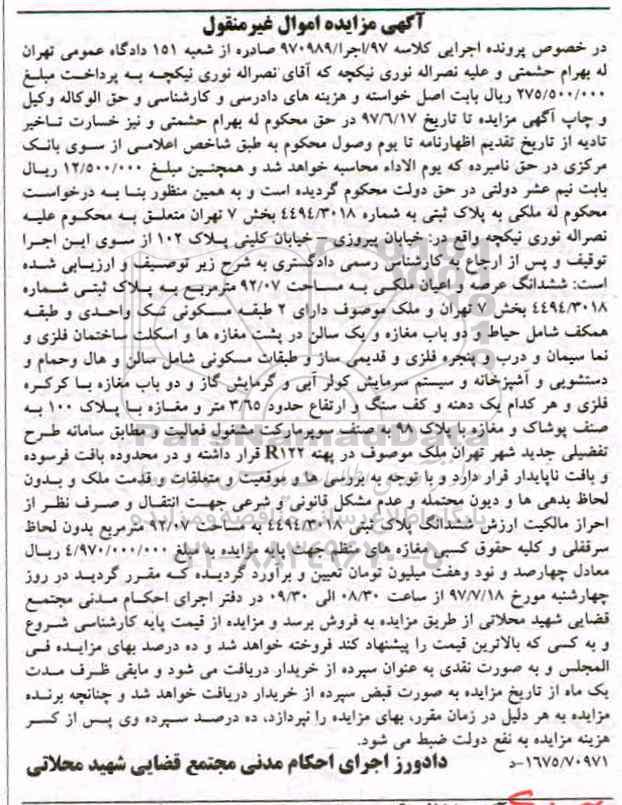 آگهی مزایده اموال غیرمنقول
در خصوص پرونده اجرایی کلاسه ۹۷/اجرا/۹۷۰۹۸۹ صادره از شعبه ۱۵۱ دادگاه عمومی تهران
له بهرام حشمتی و علیه نصراله نوری نیکچه که آقای نصراله نوری نیکچـه بـه پرداخـت مبلـغ
۲۷۵/۵۰۰/۰۰۰ ریال بابت اصل خواسته و هزینه های دادرسی و کارشناسی و حق الوکاله وکیل
و چاپ آگهی مزایده تا تاریخ ۹۷/۶/۱۷ در حق محکوم له بهرام حشمتی و نیز خسارت تـاخیر
تادیه از تاریخ تقدیم اظهارنامه تا یوم وصول محکوم به طبق شاخص اعلامـی از سـوی بانـک
مرکزی در حق نامبرده که یوم الاداء محاسبه خواهد شد و همچنـین مبلـغ ۱۲/۵۰۰/۰۰۰ ریـال
بابت نیم عشر دولتی در حق دولت محکوم گردیده است و به همین منظور بنـا بـه درخواسـت
محکوم له ملکی به پلاک ثبتی به شماره ۴۴۹۴/۳۰۱۸ بخش ۷ تهران متعلـق بـه محکـوم علیـه
نصراله نوری نیکچه واقع در: خیابان پیروزی – خیابان کلینی پـلاک ۱۰۲ از سـوی ایـن اجـرا
توقیف و پس از ارجاع به کارشناس رسمی دادگستری به شرح زیر توصیـف و ارزیـابی شـده
است: ششدانگ عرصه و اعیان ملکـی بـه مسـاحت ۹۲/۰۷ مترمربـع بـه پـلاک ثبتـی شـماره
۴۴۹۴/۳۰۱۸ بخش ۷ تهران و ملک موصوف دارای ۲ طبقـه مسـکونی تـک واحـدی و طبقـه
همکف شامل حیاط و دو باب مغازه و یک سالن در پشت مغازه ها و اسکلت ساختمان فلزی و
نما سیمان و درب و پنجره فلزی و قدیمی ساز و طبقات مسکونی شامل سالن و هال وحمام و
دستشویی و آشپزخانه و سیستم سرمایش کولر آبی و گرمایش گاز و دو باب مغازه بـا کرکـره
فلزی و هر کدام یک دهنه و کف سنگ و ارتفاع حدود ۳/۶۵ متر و مغـازه بـا پـلاک ۱۰۰ بـه
صنف پوشاک و مغازه با پلاک ۹۸ به صنف سوپرمارکت مشغول فعالیت و مطابق سامانه طـرح
تفضیلی جدید شهر تهران ملک موصوف در پهنه R۱۲۲ قرار داشته و در محدوده بافت فرسوده
و بافت ناپایدار قرار دارد و با توجه به بررسی ها و موقعیت و متعلقات و قدمت ملـک و بـدون
لحاظ بدهی ها و دیون محتمله و عدم مشکل قانونی و شرعی جهـت انتقـال و صـرف نظـر از
احراز مالکیت ارزش ششدانگ پلاک ثبتی ۴۴۹۴/۳۰۱۸ به مساحت ۹۲/۰۷ مترمربع بدون لحاظ
سرقفلی و کلیه حقوق کسبی مغازه های متعلقه جهت پایه مزایده به مبلغ ۴/۹۷۰/۰۰۰/۰۰۰ ریـال
معادل چهارصد و نود وهفت میلیون تومان تعیین و برآورد گردیـده کـه مقـرر گردیـد در روز
چهارشنبه مورخ ۹۷/۷/۱۸ از ساعت ۰۸/۳۰ الی ۰۹/۳۰ در دفتر اجرای احکـام مـدنی مجتمـع
قضایی شهید محلاتی از طریق مزایده به فروش برسد و مزایده از قیمت پایه کارشناسی شـروع
و به کسی که بالاترین قیمت را پیشنهاد کند فروخته خواهد شد و ده درصد بهای مزایـده فـی
المجلس و به صورت نقدی به عنوان سپرده از خریدار دریافت می شود و مابقی ظـرف مـدت
یک ماه از تاریخ مزایده به صورت قبض سپرده از خریدار دریافت خواهد شد و چنانچه برنده
مزایده به هر دلیل در زمان مقرر، بهای مزایده را نپردازد، ده درصـد سـپرده وی پـس از کسـر
هزینه مزایده به نفع دولت ضبط می شود.
۱۶۷۵/۷۰۹۷۱–د دادورز اجرای احکام مدنی مجتمع قضایی شهید محلاتی
ParsNamadData
۰۲۱-۸۸۳۴۹۶۷۰-۵